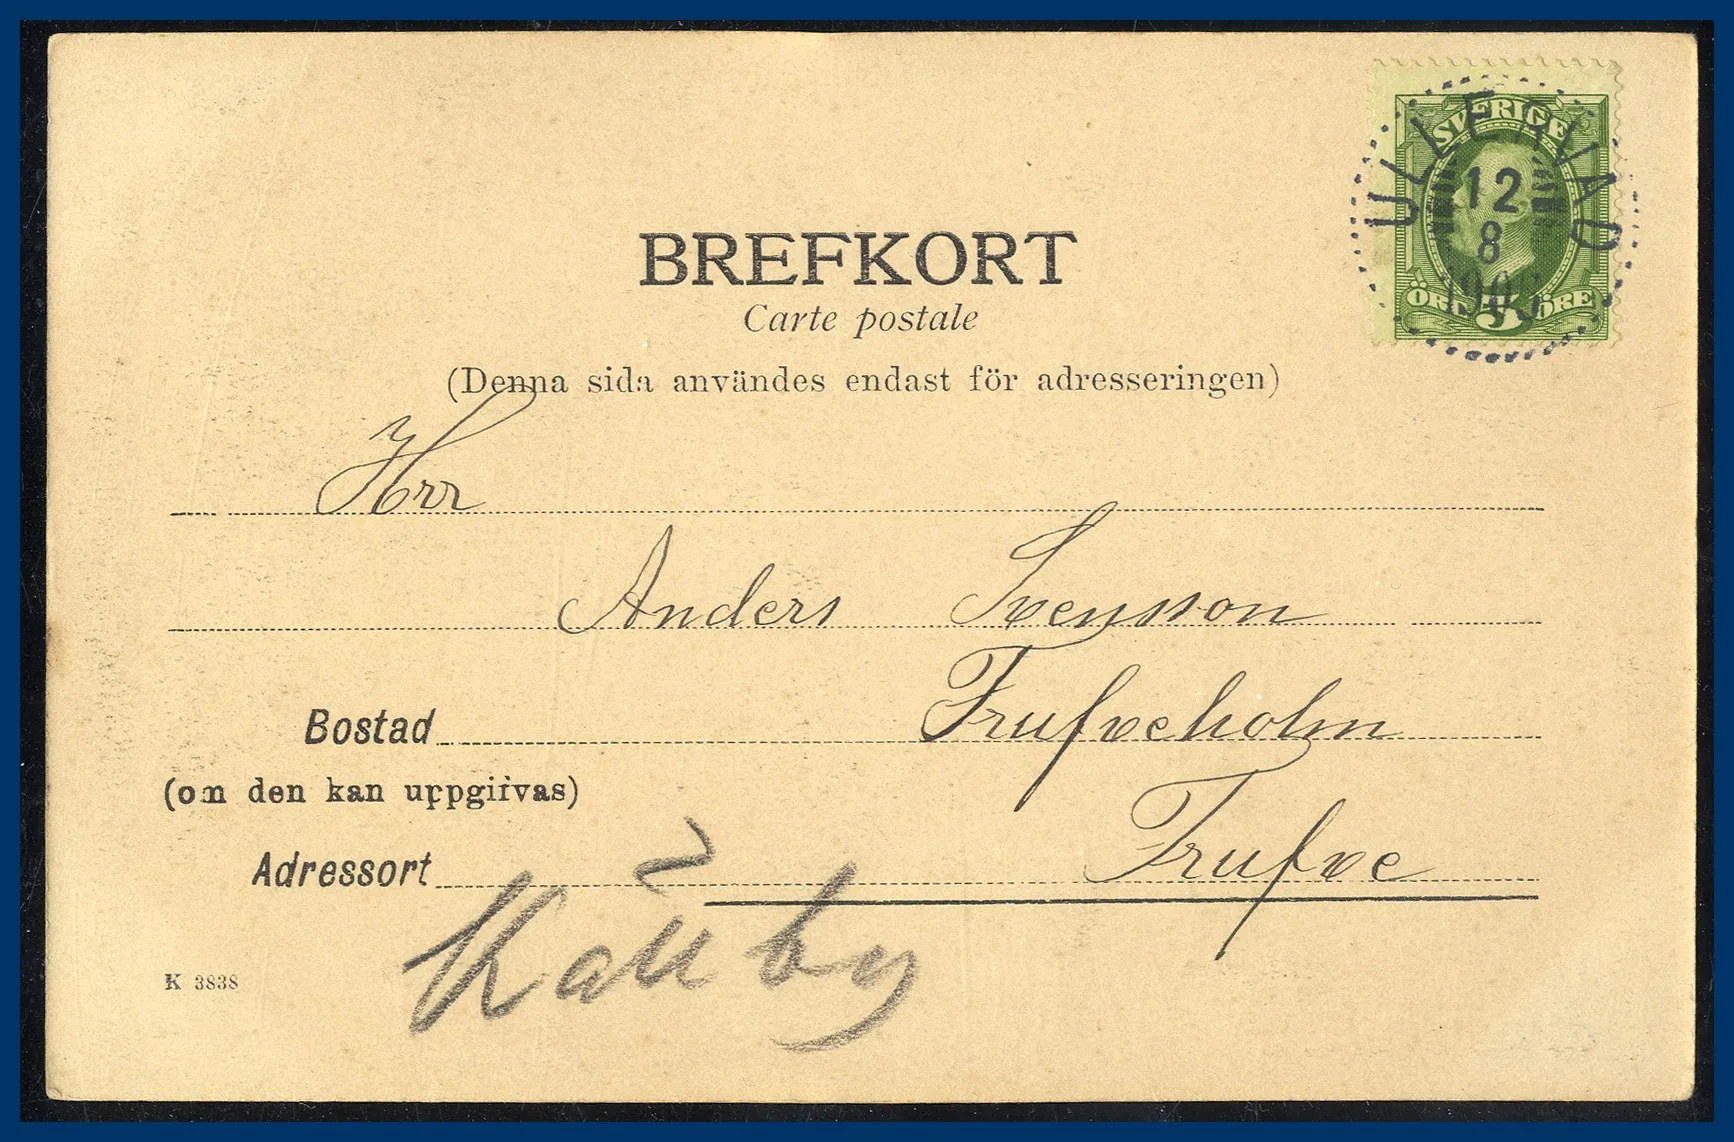 SVERIGE
ULLERVAD
12
8
ÖRE 5 ÖRE
BREFKORT
Carte postale
(Denna sida användes endast för adresseringen)
Herr
Anders Svensson
Bostad Trufveholm
(om den kan uppgifvas)
Adressort Trufve
Källby
K 3838